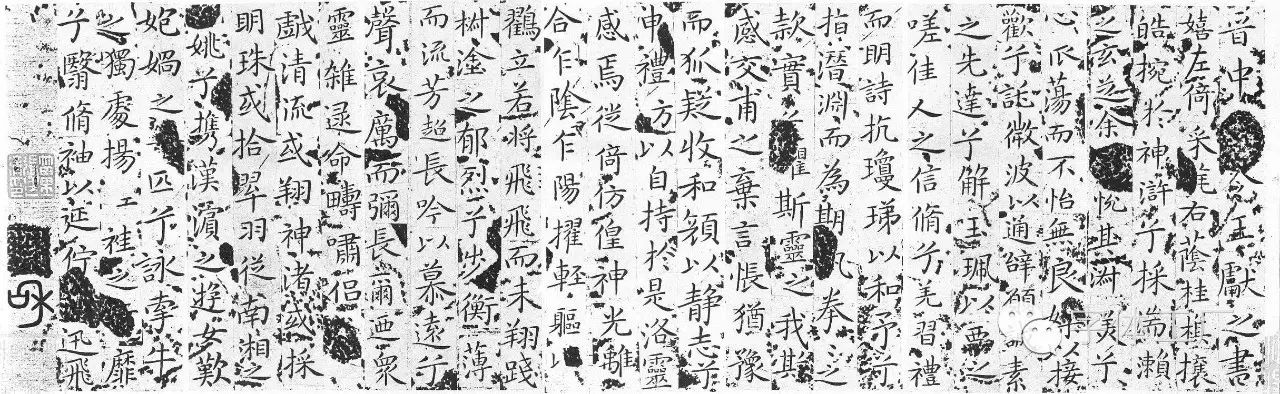 晋中令王獻之書
嬉左倚采旄右蔭桂旗攘
皓捥於神滸兮採湍瀨
之玄芝余悅其淑美兮
心蕩而不怡無良媒以接
歡兮託微波以通辭願素
之先達兮解玉珮以要之
嗟佳人之信脩兮羌習禮
而明詩抗瓊珶以和予兮
指潛淵而為期拳之
款實兮懼斯靈之我欺
感交甫之棄言悵猶豫
而狐疑收和顏以静志兮
申禮防以自持於是洛靈
感焉徙倚仿偟神光離
合乍陰乍陽擢輕軀以
鶴立若將飛飛而未翔踐
椒塗之郁烈兮步衡薄
而流芳超長吟以慕遠兮
聲哀厲而彌長爾迺眾
靈雜遝命疇嘯侶
戲清流或翔神渚或採
明珠或拾翠羽從南湘之
姚兮攜漢濱之遊女歎
妃媧之匹兮詠牽牛
之獨處揚袿之靡
兮翳脩袖以延佇迅飛